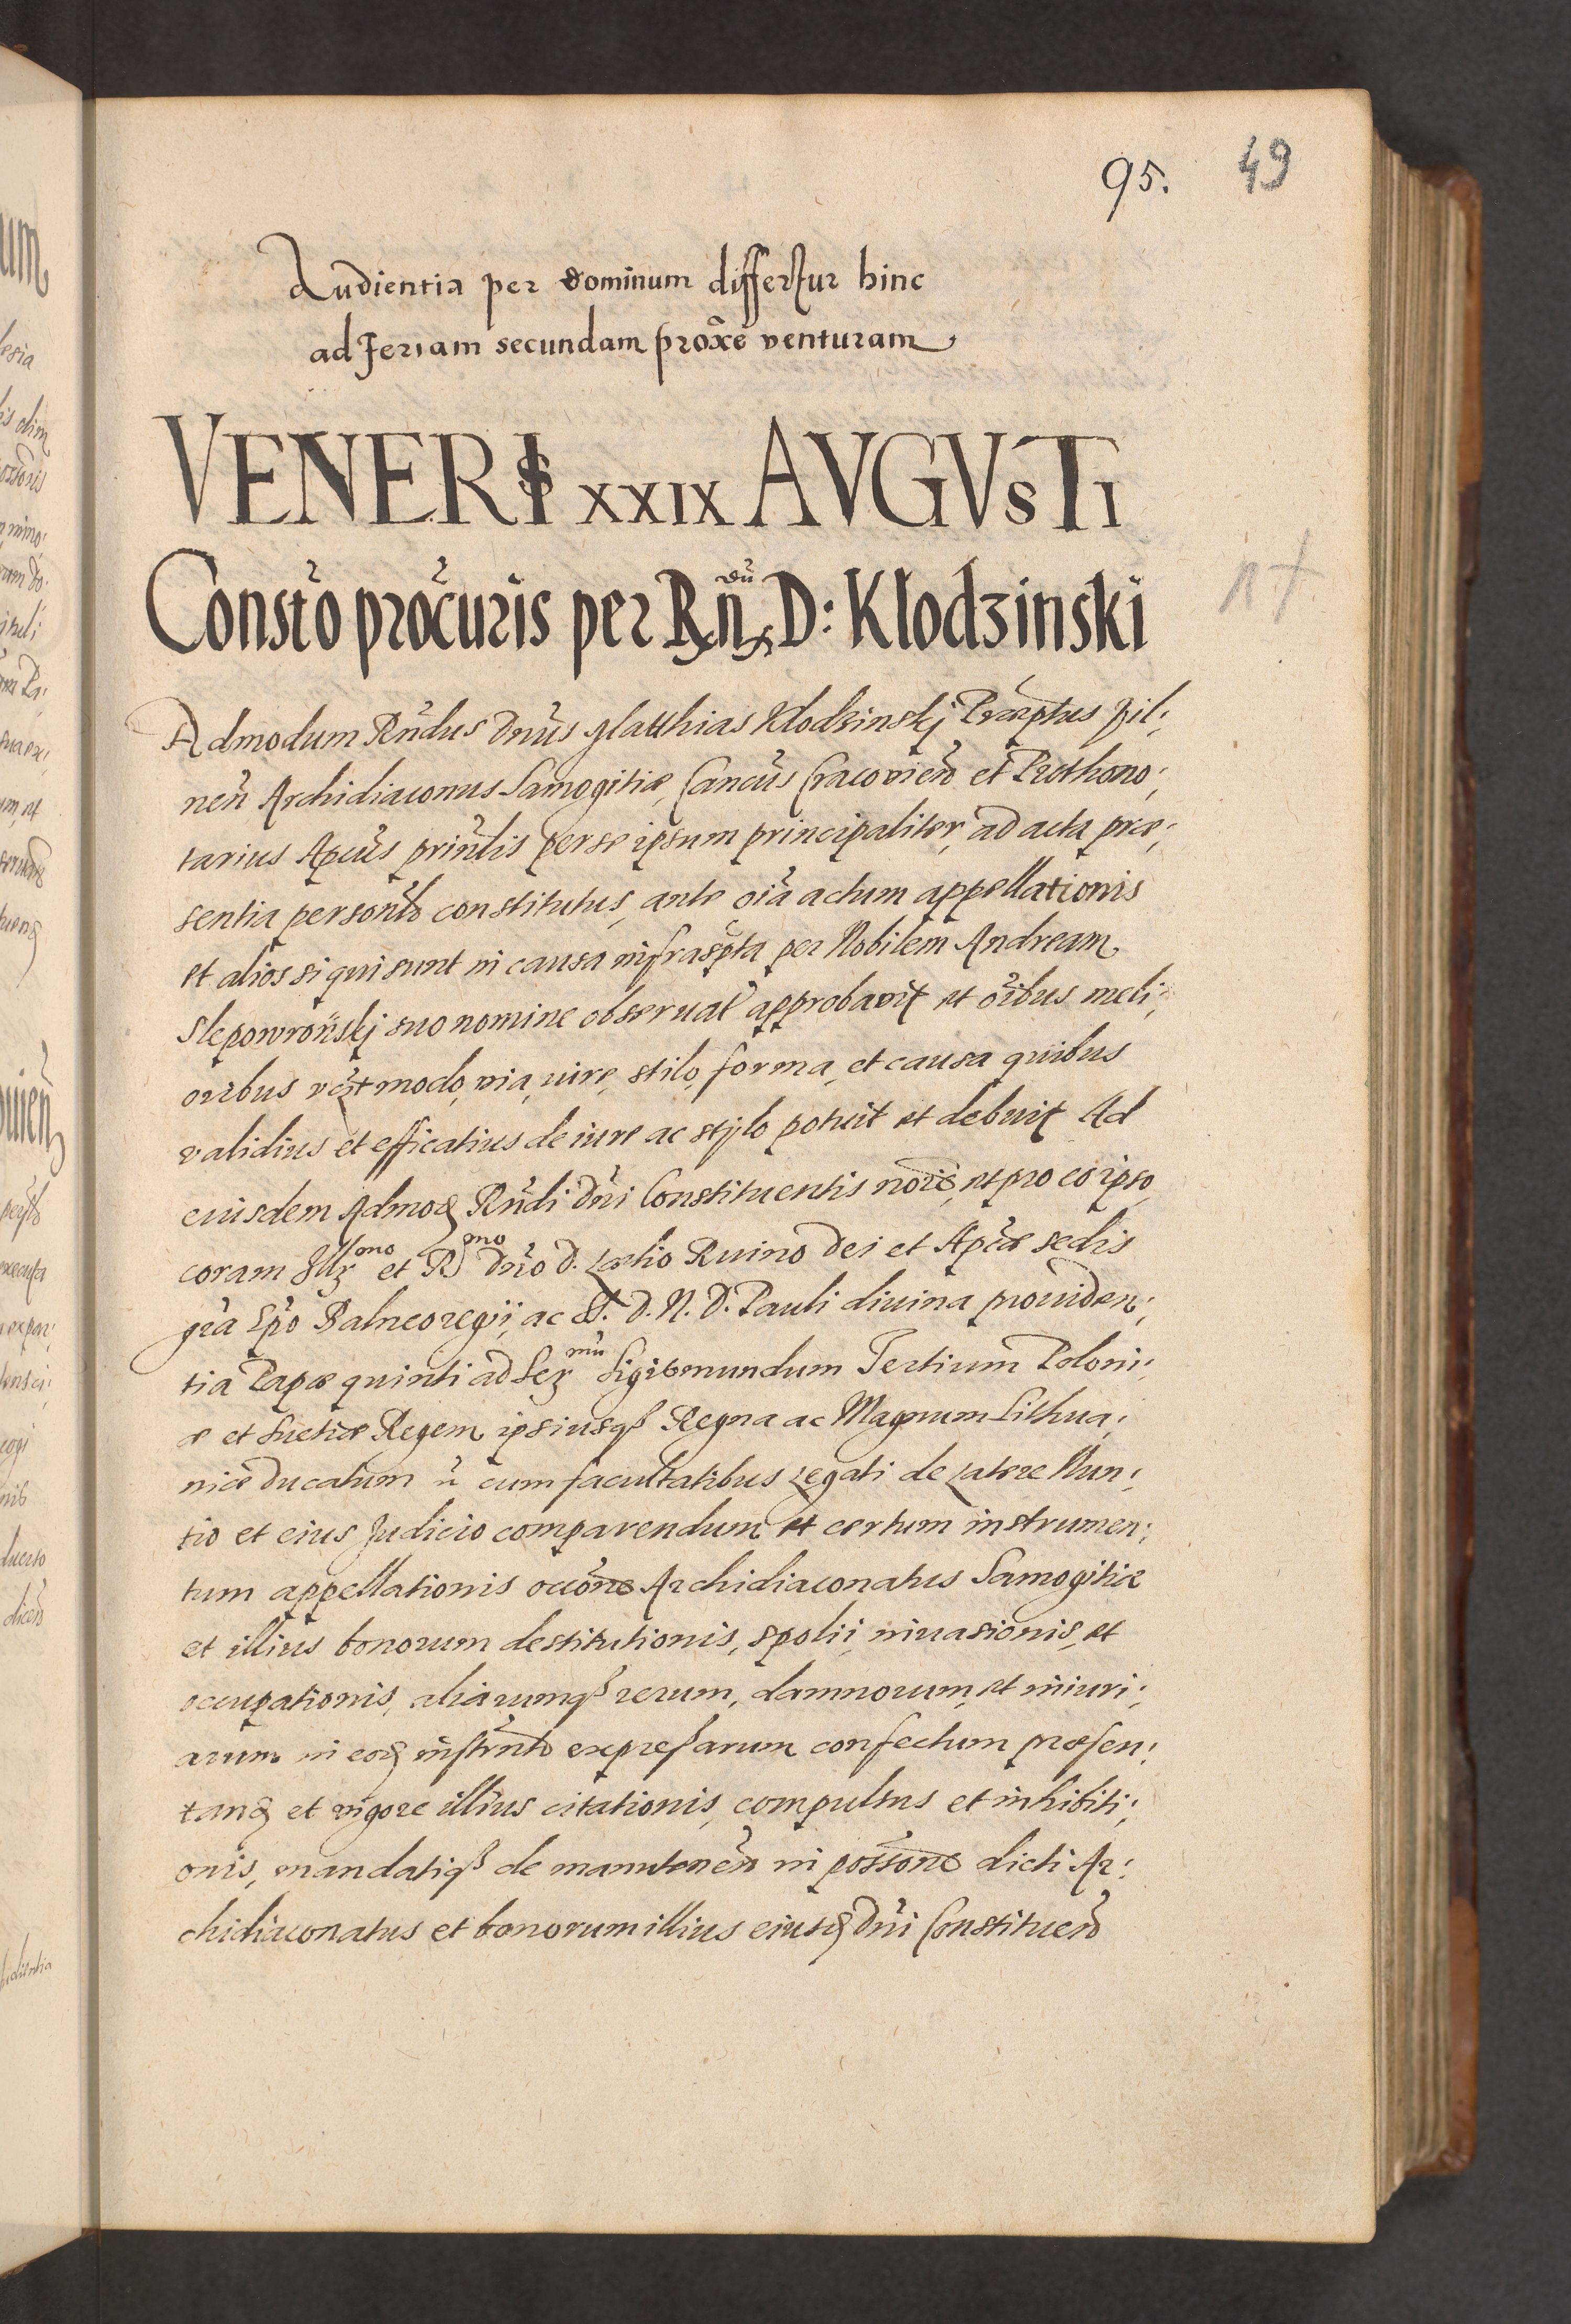 95. 49
Audientia per dominum differtur hinc
ad feriam secundam proxe venturam
VENERIS XXIX AVGVSTI
Consto procuris per Rndū D: Klodzinski
nt
Admodum Rndus Dnus Matthias Klodzinskj Præptus Pil;
nen Archidiaconus Samogitiæ, Cancus Cracovien et Prothono;
tarius Apcus prinlis per se ipsum principaliter, ad acta præ;
sentia personlr constitutus, ante oia actum appellationis
et alios si qui sunt in causa infrascpta per Nobilem Andream
Slepowrońskj suo nomine obseruat approbavit et oibus meli;
oribus modo, via, iure, stilo, forma, et causa quibus
validius et efficatius de iure ac stylo potuit et debuit Ad
eiusdem Admo Rndi Dni Constituentis noie, et pro eo ipso
coram Illmo et Rmo Dno D. Lælio Ruino Dei et Apcæ sedis
gra Epo Balneoregii, ac S. D. N. D. Pauli divina providen;
tia Papæ quinti ad Sermū Sigismundum Tertium Poloni;
æ et Suetiæ Regem ipsiusq Regna ac Magnum Lithua;
niæ Ducatum cum facultatibus Legati de Latere Nun;
tio et eius Judicio comparendum et certum instrumen;
tum appellationis occone Archidiaconatus Samogitiæ
et illius bonorum destitutionis, spolii, invasionis, et
occupationis, aliarumq rerum, damnorum, et iniuri;
arum in eod instrnto expressarum confectum præsen;
tand et vigore illius citationis, compulsus et inhibiti;
onis, mandatiq de manutenen in possone dicti Ar;
chidiaconatus et bonorum illius eiusd Dni Constituen